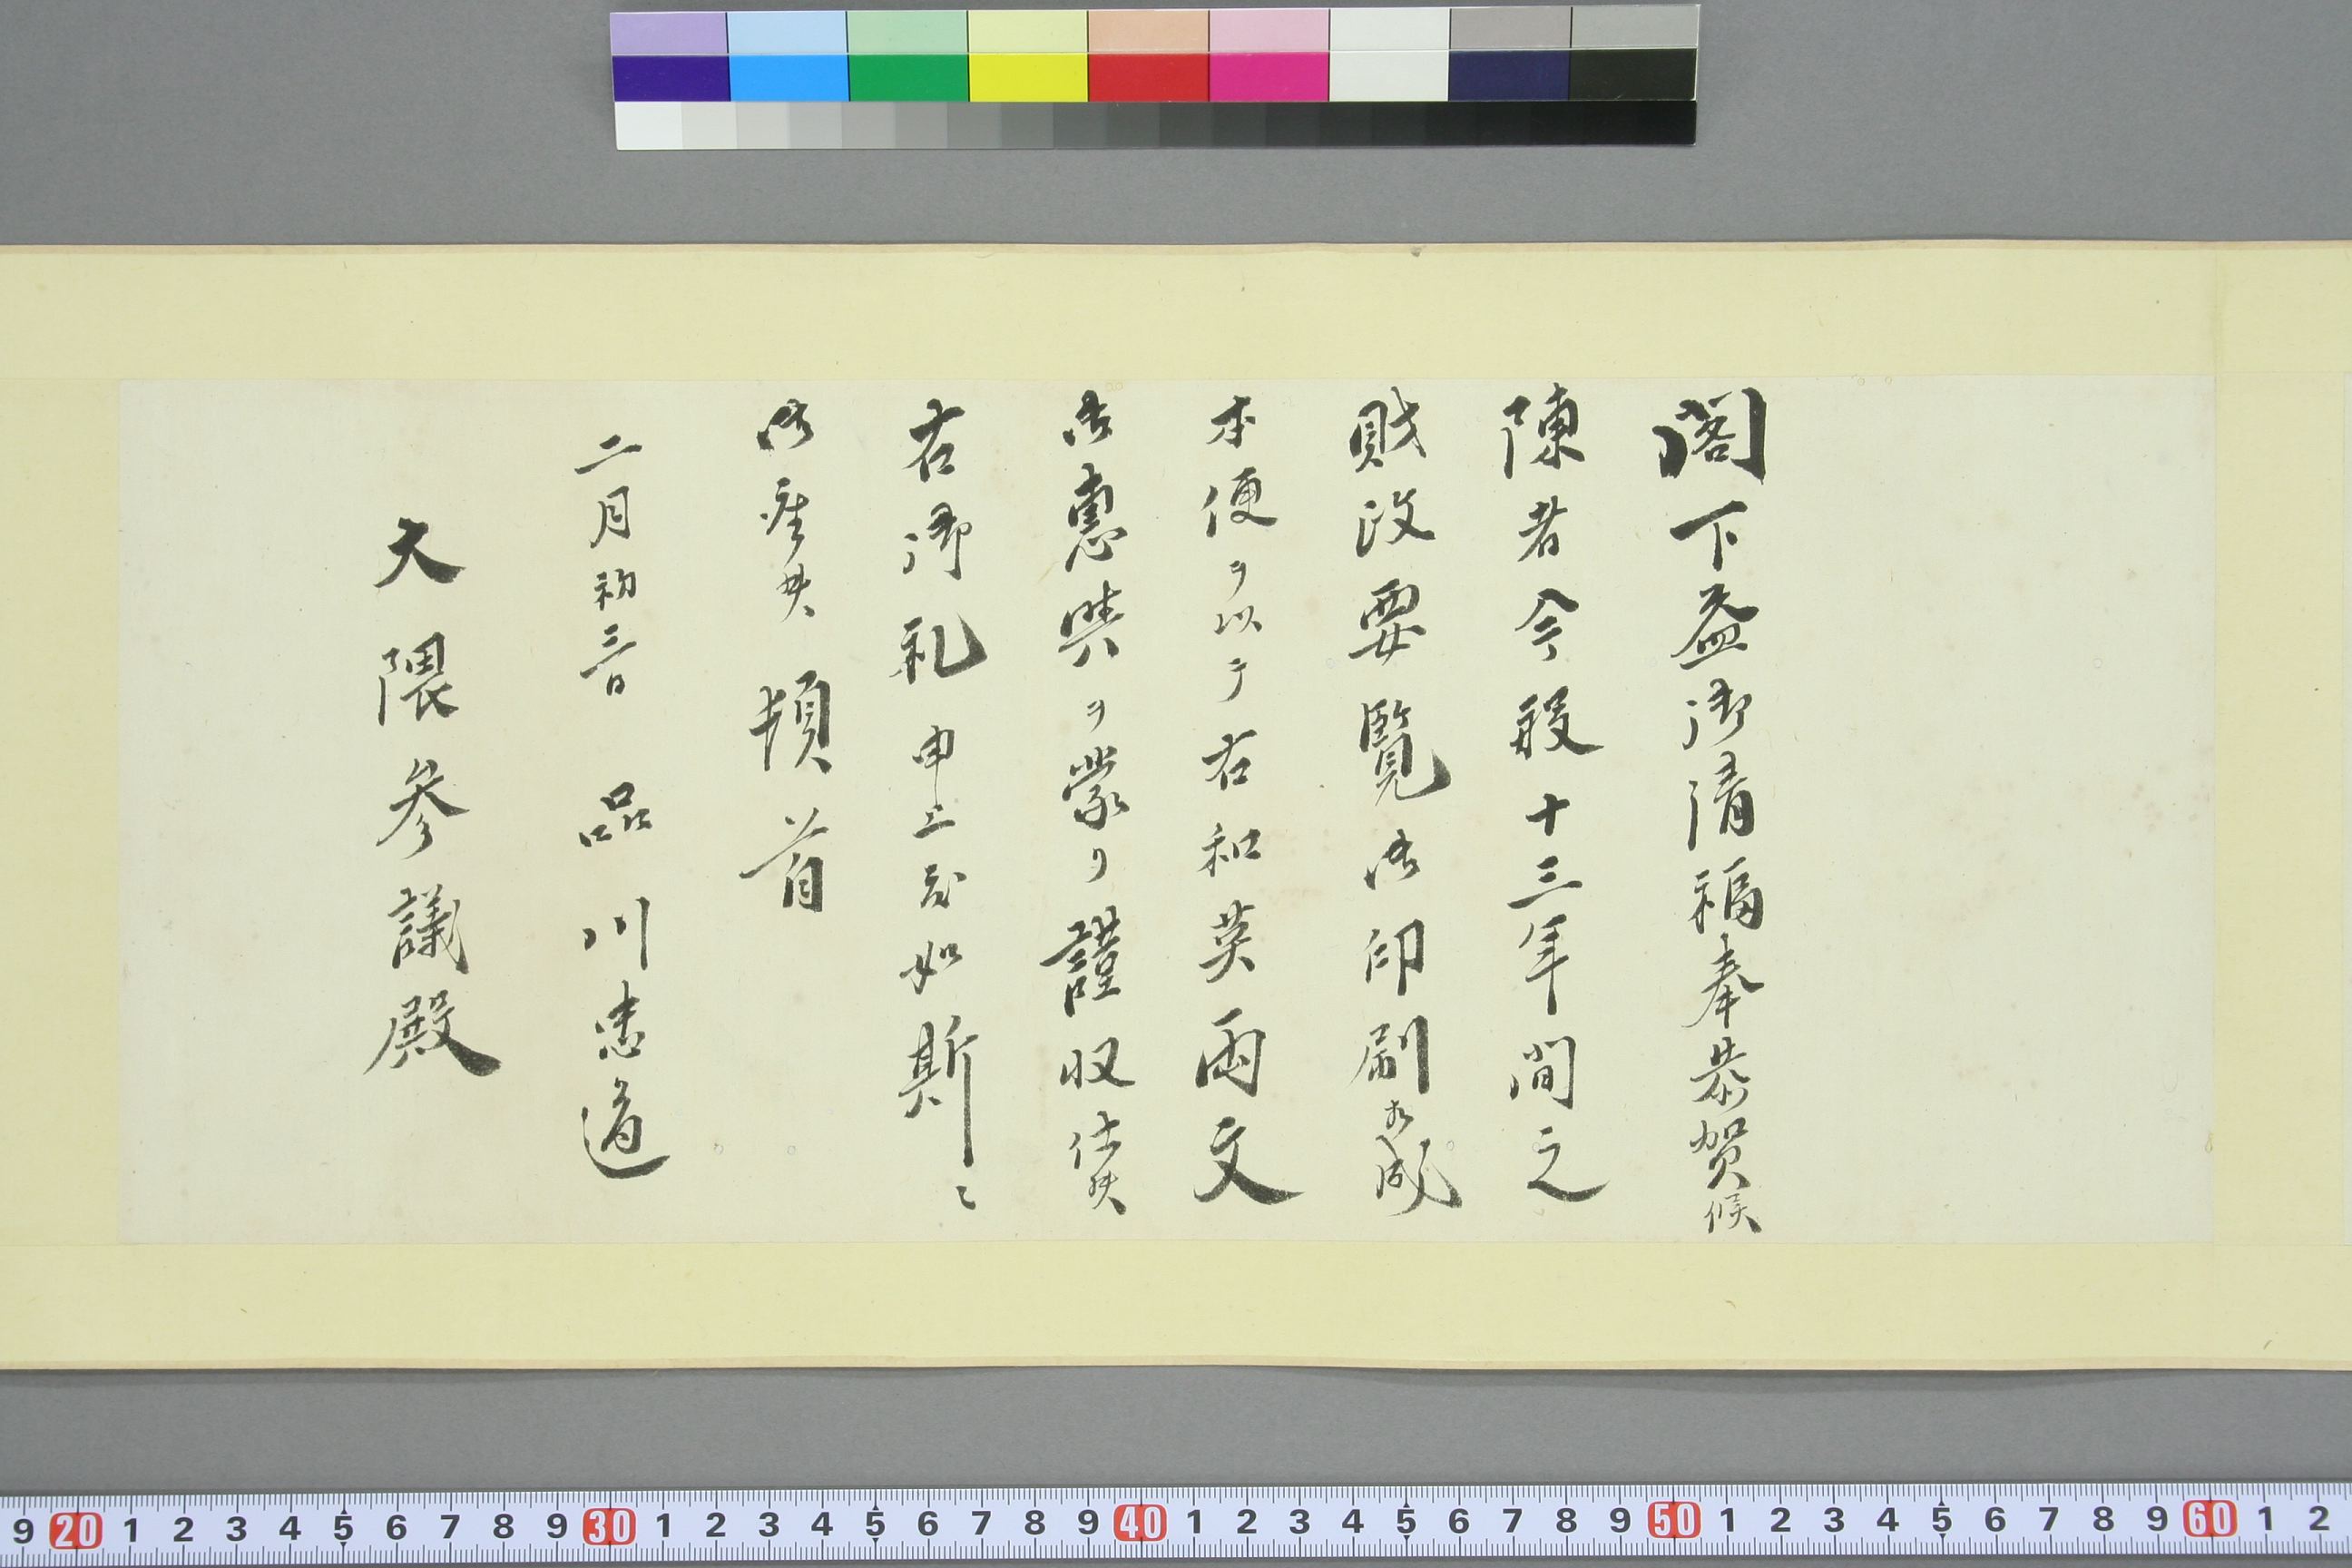 閣下益御清福奉恭賀候
陳者今般十三年間之
財政要覧御印刷相成
本便ヲ以テ右和英両文
御恵与ヲ蒙リ謹収仕候
右御礼申上度如斯ニ
御座候 頓首
二月初三日 品川忠道
大隈参議殿
9 20 1 2 3 4 5 6 7 8 9 30 1 2 3 4 5 6 7 8 9 40 1 2 3 4 5 6 7 8 9 50 1 2 3 4 5 6 7 8 9 60 1 2